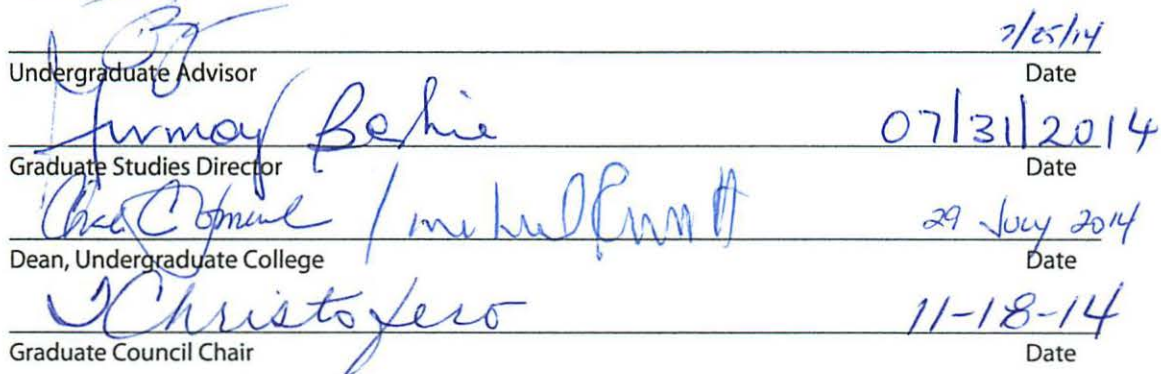 7/25/14
Undergraduate Advisor Date
07/31/2014
Graduate Studies Director Date
29 July 2014
Dean, Undergraduate College Date
Christofero 11-18-14
Graduate Council Chair Date